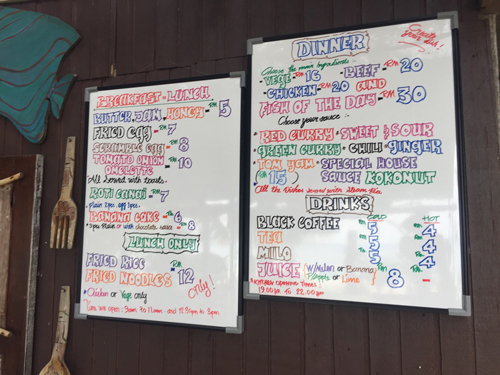 BREAKFAST - LUNCH
BUTTER, JAM, HONEY - RM 5
FRIED EGG - RM 7
SCRAMBLE EGG - RM 8
TOMATO ONION OMELETTE - RM 10
All served with toasts.
ROTI CANAI - RM 7
BANANA CAKE - RM 6
or with chocolate sauce - RM 8
LUNCH ONLY
FRIED RICE
FRIED NOODLES - RM 12
Chicken or Vege only
only!
Time we open: 9am to 11am - and 12.30pm to 3pm
DINNER
Choose the main ingredients:-
VEGE - RM 16 - BEEF - RM 20
- CHICKEN - RM 20 AND
FISH OF THE DAY - RM 30
Choose your sauce:-
RED CURRY - SWEET & SOUR
GREEN CURRY - CHILI GINGER
TOM YAM - SPECIAL HOUSE
RM 15 SAUCE KOKONUT
All the Dishes served with steam rice
DRINKS
COLD HOT
BLACK COFFEE 5 4
TEA 5 4
MILO 5 4
JUICE (W/Melon or Banana) RM 8 -
P/Apple or Lime
KITCHEN OPENING TIMES:
19.00 pm To 22.00 pm